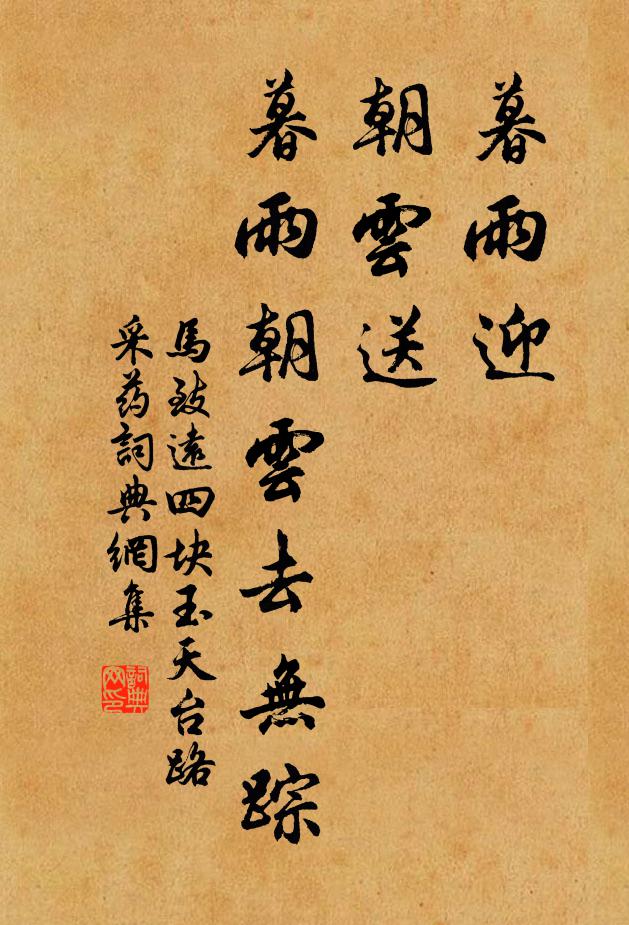 暮雨迎
朝雲送
暮雨朝雲去無踪
馬致遠四块玉天台路
采药詞典網集
詞典網印